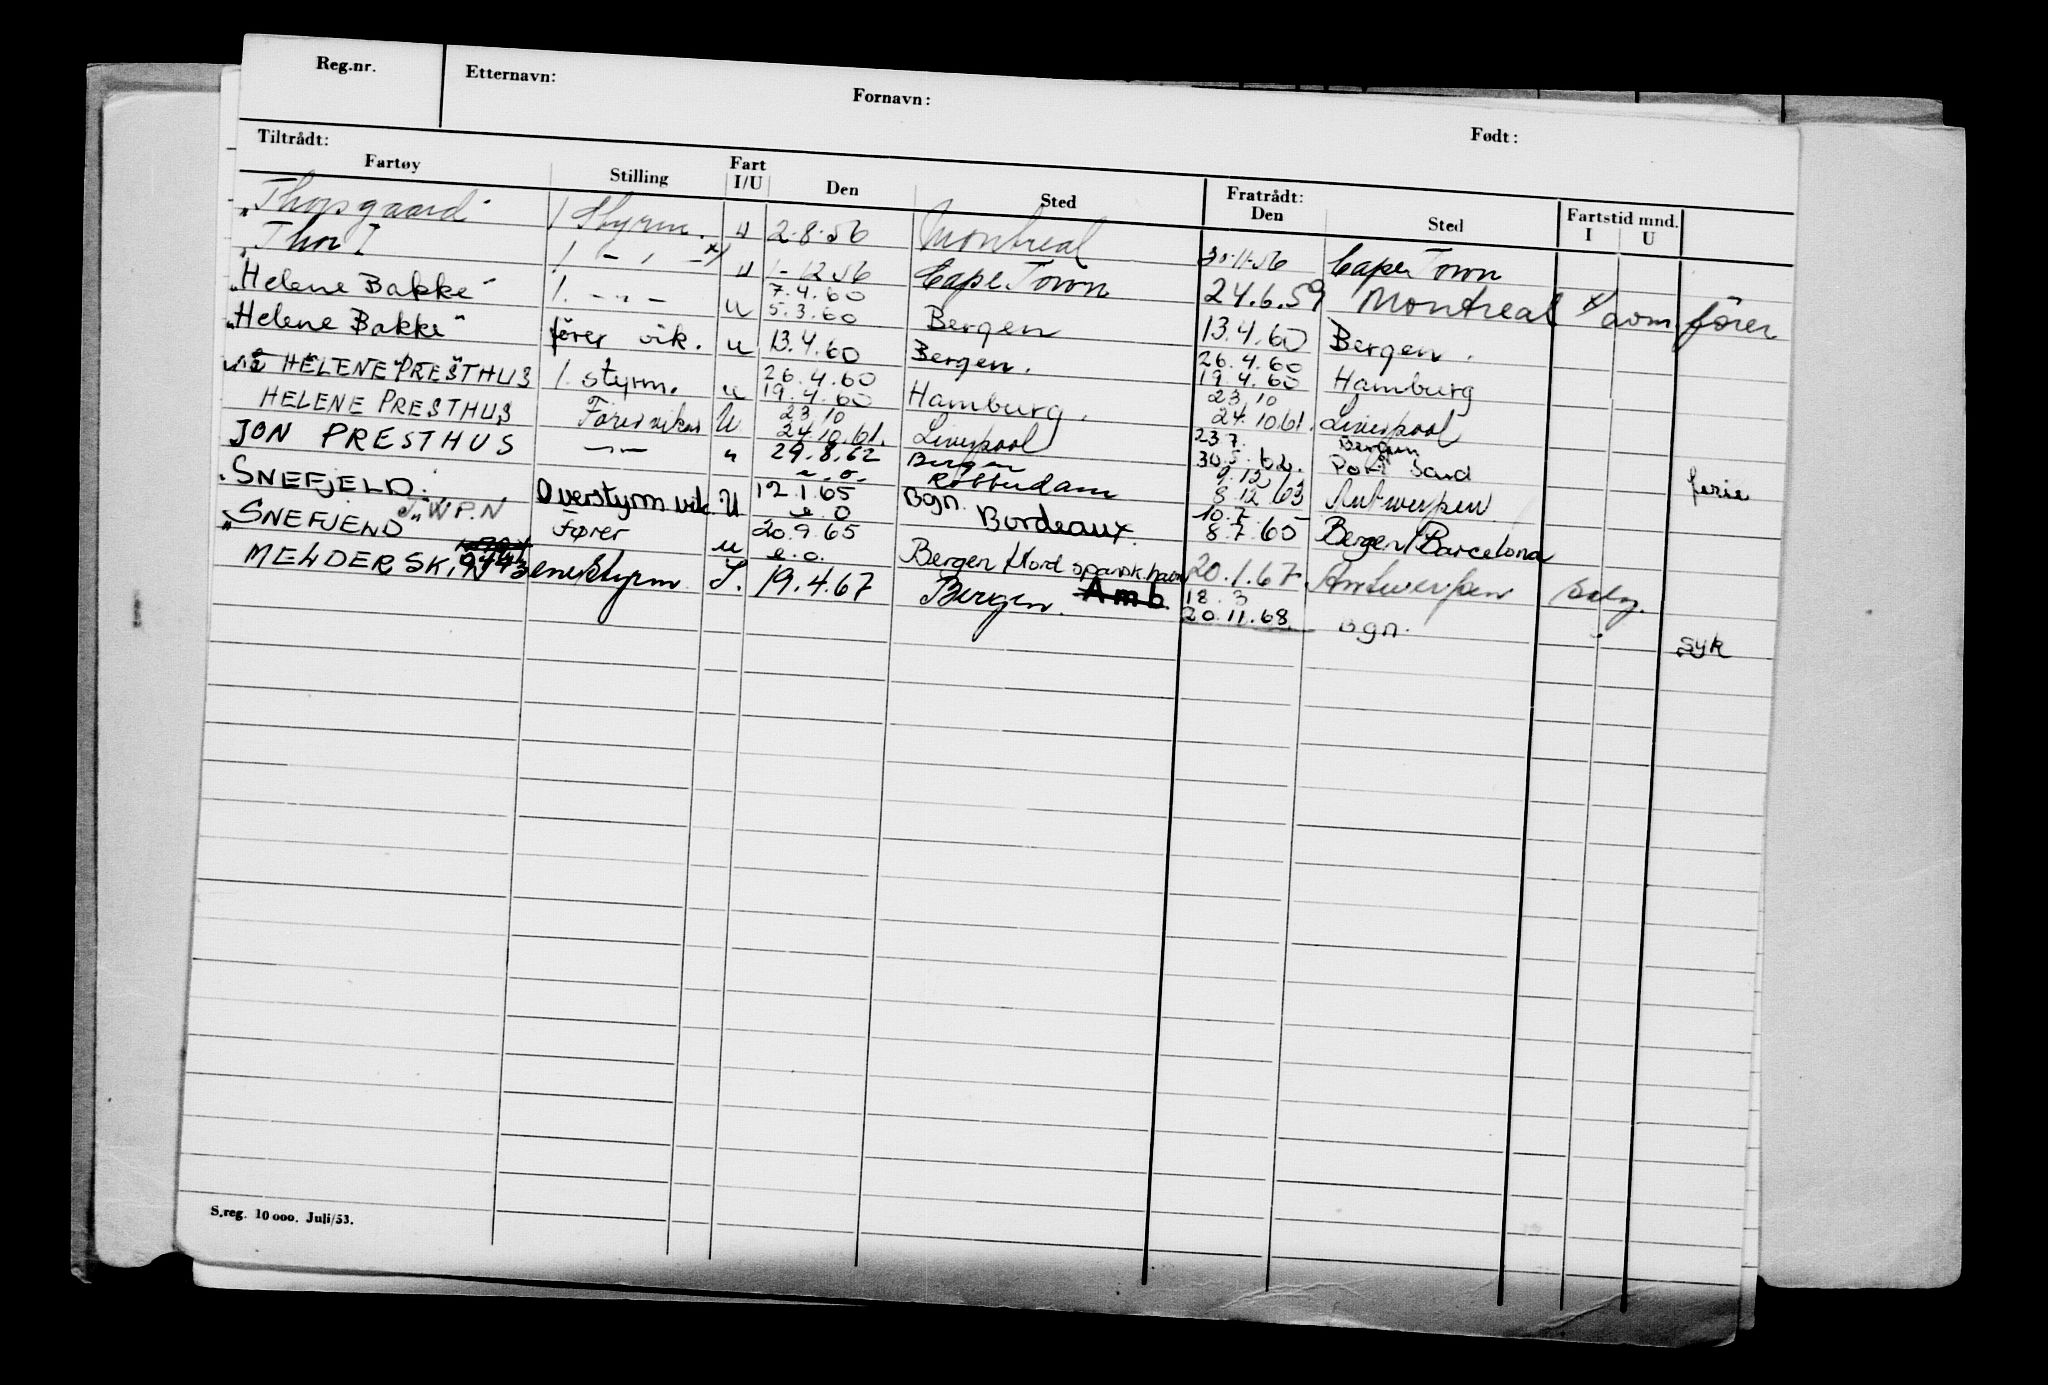 Reg.nr. Etternavn: Fornavn: Født:
Tiltrådt: Fratrådt:
Fartøy Stilling Fart I/U Den Sted Den Sted Fartstid mnd. I U
"Thorsgaard" 1 Styrm. U 2.8.56 Montreal 30.11.56 Cape Town
"Thor I 1 - " - x) U 1-12.56 Cape Town 24.6.59 Montreal x/ avm. fører
"Helene Bakke" 1. - " - U 7.4.60 5.3.60 Bergen 13.4.60 Bergen.
"Helene Bakke" fører vik. U 13.4.60 Bergen. 26.4.60 19.4.60 Hamburg
HELENE PRESTHUS 1. styrm. U 26.4.60 19.4.60 Hamburg. 23 10 24.10.61. Liverpool
HELENE PRESTHUS Fører vikar U 23 10 24.10.61. Liverpool 23 7. 30.5.62. Bergen Port
JON PRESTHUS -"- " 29.8.62 Bergen Rotterdam 9.12 8.12 63 Antwerpen ferie
SNEFJELD. Overstyrm vik. U 12.1.65 e.o Bgn. Bordeaux. 10.7. 8.7.65 Bergen/Barcelona
"SNEFJELD" Fører U 20.9.65 e.o. Bergen /Nord spansk havn 20.1.67 Antwerpen salg.
MELDERSKIN enestyrm S. 19.4.67 Bergen. Amb. 18.3 20.11.68. Bgn. syk
S.reg. 10 000. Juli/53.